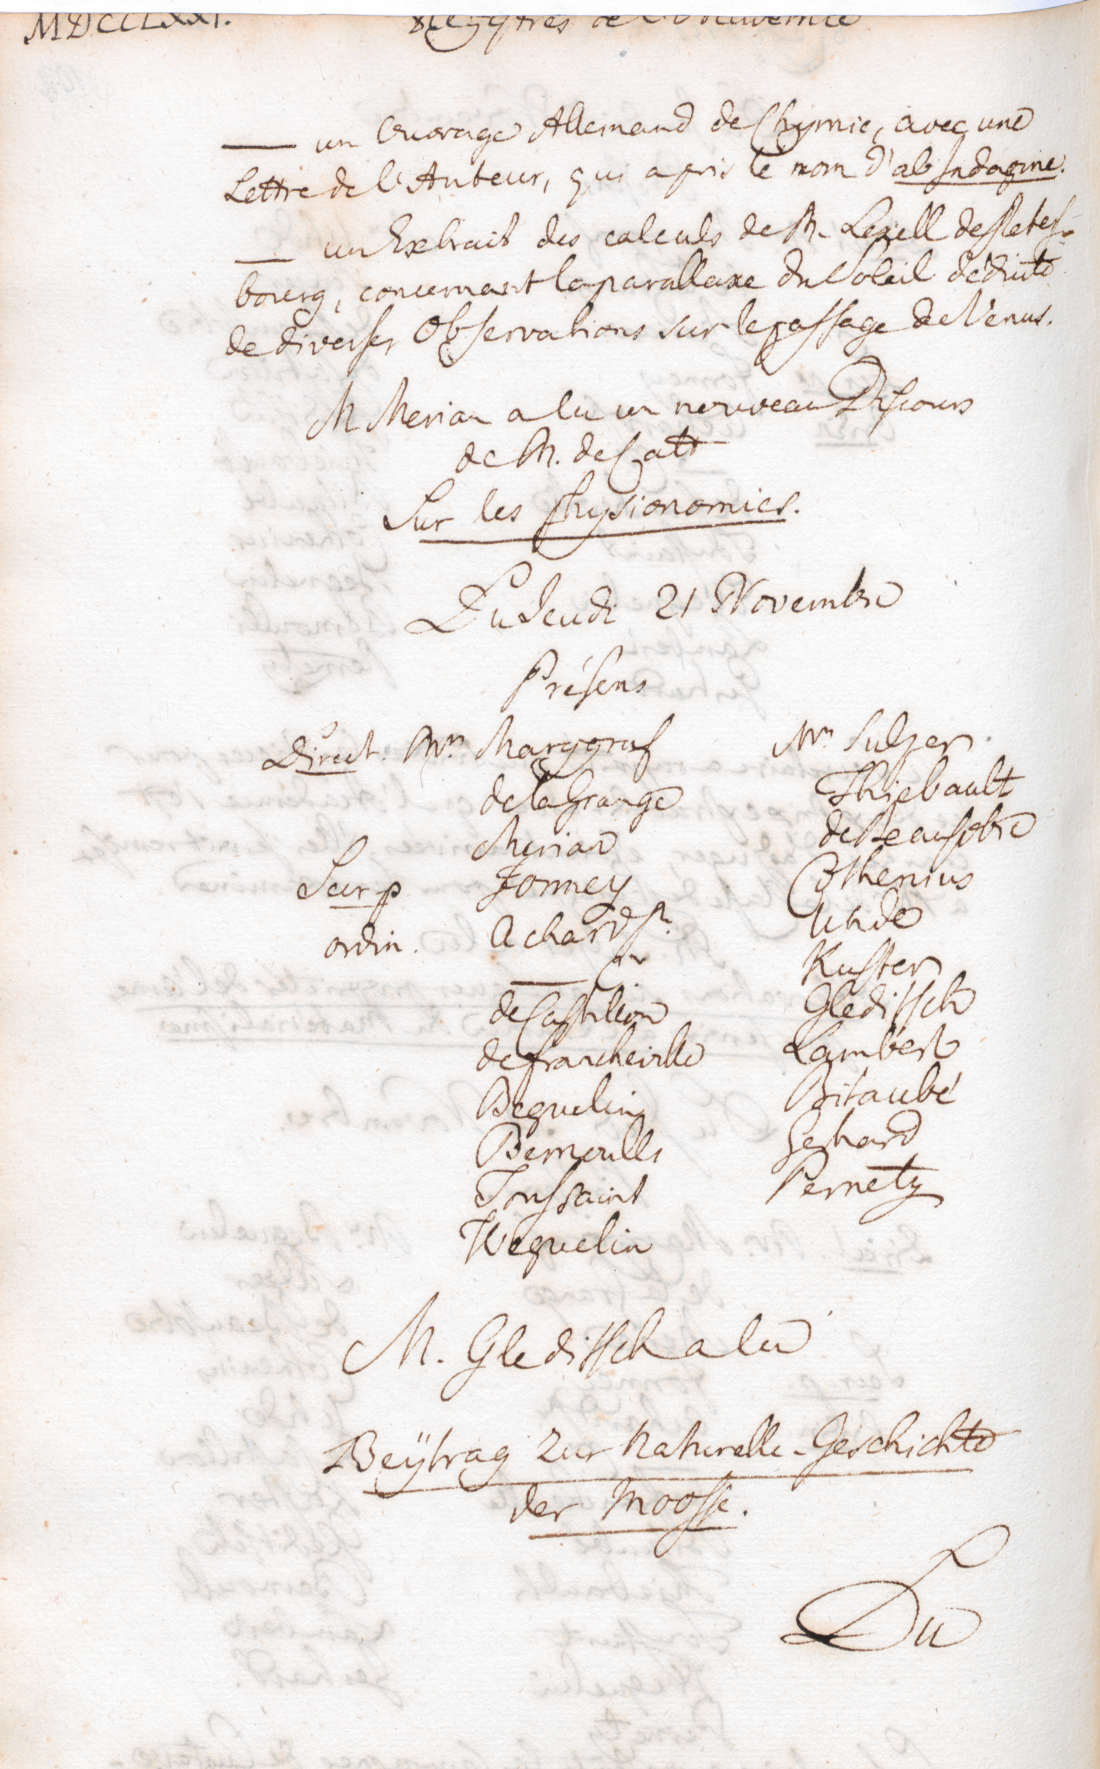 MDCCLXXI. Regystres de l'Académie
—— un Ouvrage Allemand de Chymie, avec une
Lettre de l'Auteur, qui a pris le nom d'ab Indagine.
—— un Extrait des calculs de M. Lexell de Peters-
bourg, concernant la parallaxe du Soleil déduite
de diverses Observations sur le passage de Vénus.
M Merian a lu un nouveau Discours
de M. de Catt
Sur les physionomies.
Du Jeudi 21 Novembre
Présens
Direct. Mrs Marggraf
de la Grange
Merian
Secr. p. Formey
ordin. Achard P.
——
de Castillon
de Francheville
Beguelin
Bernoulli
Toussaint
Weguelin
Mrs Sulzer.
Thiebault
de Beausobre
Cothenius
Uhde
Kuster
Gleditsch
Lambert
Bitaubé
Gerhard
Pernety
M. Gleditsch a lu
Beÿtrag zur Naturelle-Geschichte
der Moosse.
Du